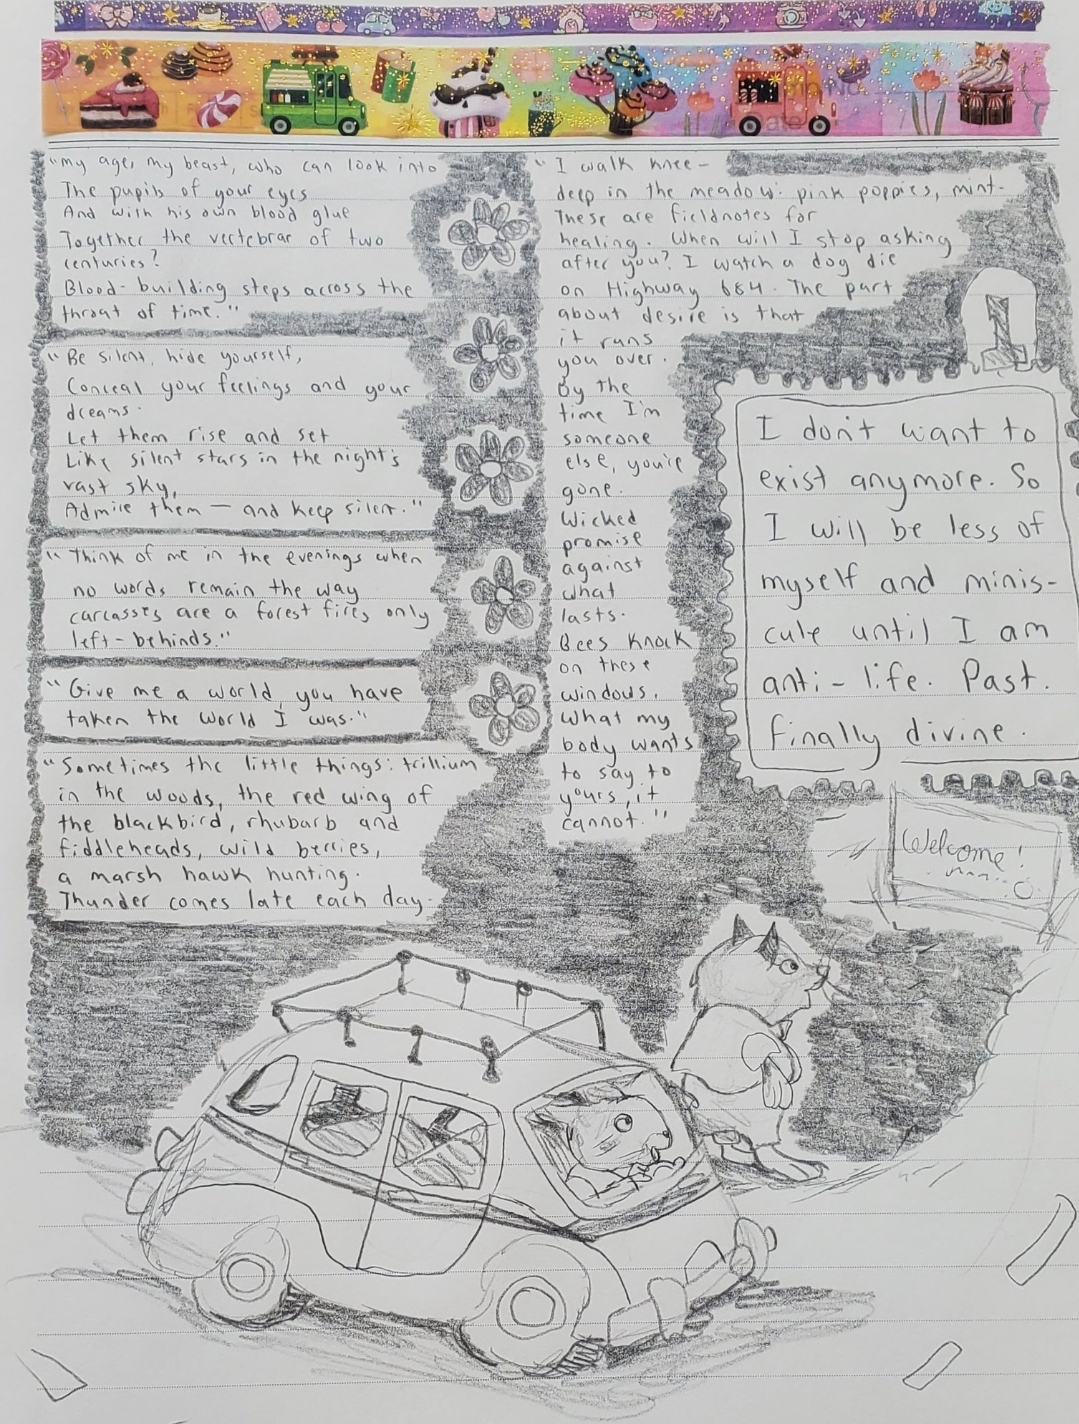 "My age, my beast, who can look into
The pupils of your eyes
And with his own blood glue
Together the vertebrae of two
centuries?
Blood-building steps across the
throat of time."
"Be silent, hide yourself,
Conceal your feelings and your
dreams.
Let them rise and set
Like silent stars in the night's
vast sky,
Admire them — and keep silent."
"Think of me in the evenings when
no words remain the way
carcasses are a forest fires only
left-behinds."
"Give me a world, you have
taken the world I was."
"Sometimes the little things: trillium
in the woods, the red wing of
the blackbird, rhubarb and
fiddleheads, wild berries,
a marsh hawk hunting.
Thunder comes late each day.
"I walk knee-
deep in the meadow: pink poppies, mint.
These are fieldnotes for
healing. When will I stop asking
after you? I watch a dog die
on Highway 684. The part
about desire is that
it runs
you over.
By the
time I'm
someone
else, you're
gone.
Wicked
promise
against
what
lasts.
Bees knock
on these
windows.
What my
body wants
to say to
yours, it
cannot."
1
I don't want to
exist anymore. So
I will be less of
myself and minis-
cule until I am
anti-life. Past.
Finally divine.
Welcome!